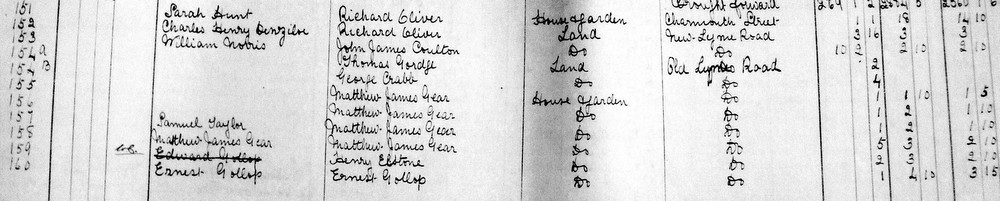 Brought forward 269 1 2
151 Sarah Hunt Richard Oliver House Garden Charmouth Street 1 18 14 10
152 Charles Henry Denziloe Richard Oliver Land New Lyme Road 3 16 3 3
153 William Norris John James Coulton Do Do 10 2 2 10 2 10
154a Thomas Gordge Land Old Lyme Road 2
154B George Crabb Do Do 4
155 Matthew James Gear House Garden Do 1 1 10 1 5
156 Matthew James Gear Do Do 1 2 1 10
157 Samuel Taylor Matthew James Gear Do Do 1 2 1 10
158 Matthew James Gear Matthew James Gear Do Do 5 3 2 10
159 Edward Gollop Henry Ebstone Do Do 2 3 2 10
160 Ernest Gollop Ernest Gollop Do Do 1 4 10 3 15